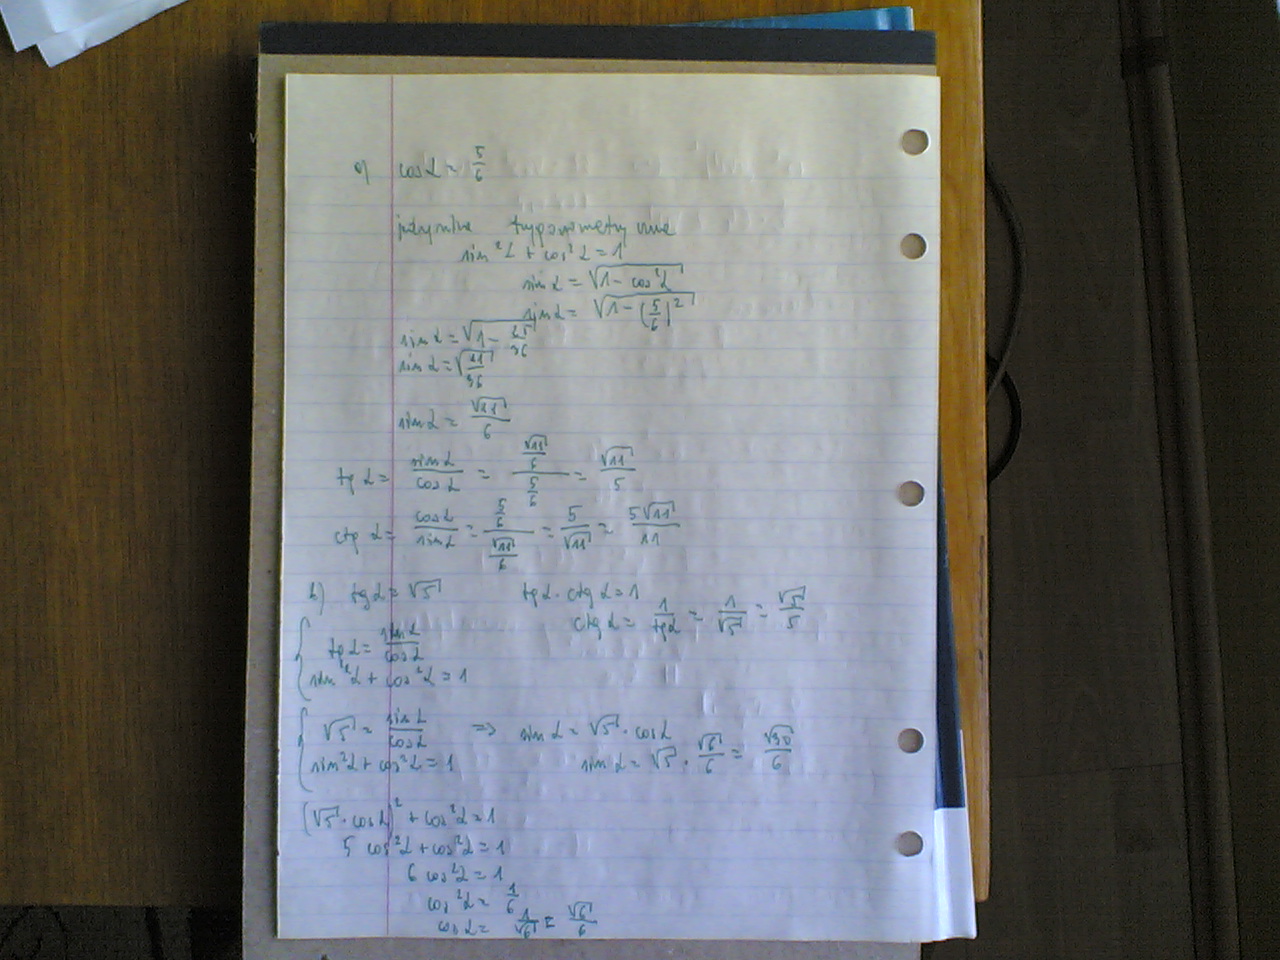 a) cos α = 5/6
jedynka trygonometryczna
sin²α + cos²α = 1
sin α = √(1 - cos²α)
sin α = √(1 - (5/6)²)
sin α = √(1 - 25/36)
sin α = √(11/36)
sin α = √11/6
tg α = sin α/cos α = (√11/6)/(5/6) = √11/5
ctg α = cos α/sin α = (5/6)/(√11/6) = 5/√11 = 5√11/11
b) tg α = √5 tg α · ctg α = 1
ctg α = 1/tg α = 1/√5 = √5/5
{ tg α = sin α/cos α
sin²α + cos²α = 1
{ √5 = sin α/cos α => sin α = √5 · cos α
sin²α + cos²α = 1 sin α = √5 · √6/6 = √30/6
(√5 · cos α)² + cos²α = 1
5 cos²α + cos²α = 1
6 cos²α = 1
cos²α = 1/6
cos α = 1/√6 = √6/6